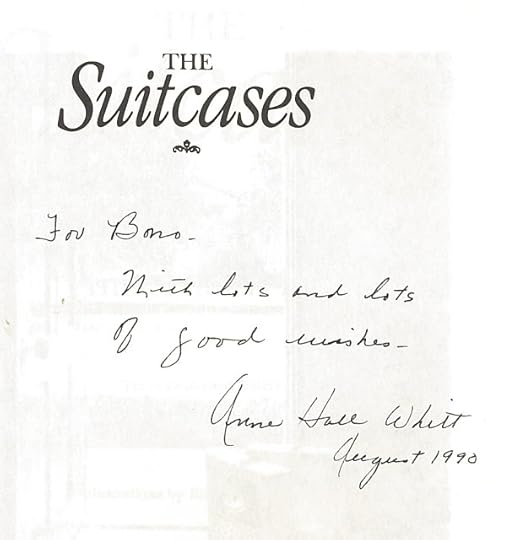 THE
Suitcases
For Bono -
With lots and lots
of good wishes -
Anne Hall Whitt
August 1990